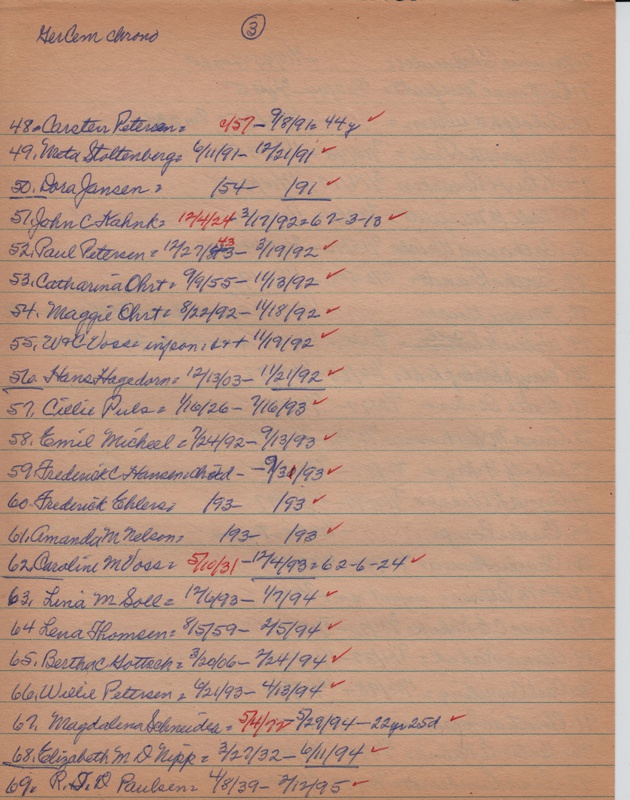 GerCem chrono ③
48. Carsten Petersen = c/57 – 9/8/91 = 44y ✓
49. Meta Stoltenberg = 6/11/91 – 12/21/91 ✓
50. Dora Jansen = /54 – /91 ✓
51. John C Kahnk = 12/4/24 3/17/92 = 67-3-13 ✓
52. Paul Petersen = 12/27/43 – 3/19/92 ✓
53. Catharina Ohrt = 9/9/55 – 11/13/92 ✓
54. Maggie Ohrt = 8/22/92 – 11/18/92 ✓
55. W & C Voss = infson: b & + 11/19/92 ✓
56. Hans Hagedorn = 12/13/03 – 11/21/92 ✓
57. Cillie Puls = 1/16/26 – 7/16/93 ✓
58. Emil Micheel = 7/24/92 – 9/13/93 ✓
59. Frederick C Hansen: child – 9/31/93 ✓
60. Frederick Ehlers: /93 – /93 ✓
61. Amanda M Nelson = /93 – /93 ✓
62. Caroline M Voss = 5/10/31 – 12/4/93 = 62-6-24 ✓
63. Lina M Soll = 12/6/93 – 1/7/94 ✓
64 Lena Thomsen = 8/5/59 – 2/5/94 ✓
65. Bertha C Gottsch = 3/20/06 – 2/24/94 ✓
66. Willie Petersen = 6/21/93 – 4/13/94 ✓
67. Magdalena Schneider = 5/4/72 – 5/29/94 – 22yr 25d ✓
68. Elizabeth M D Nipp = 3/27/32 – 6/11/94 ✓
69. R. J. D Paulsen = 4/8/39 – 2/12/95 ✓